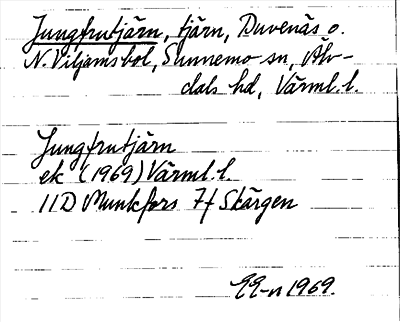 Jungfrutjärn, tjärn, Duvenäs o.
N. Viljamsbol, Sunnemo sn, Älv-
dals hd, Värml. l.
Jungfrutjärn
ek (1969) Värml. l.
11D Munkfors 7f Skärgen
1969.